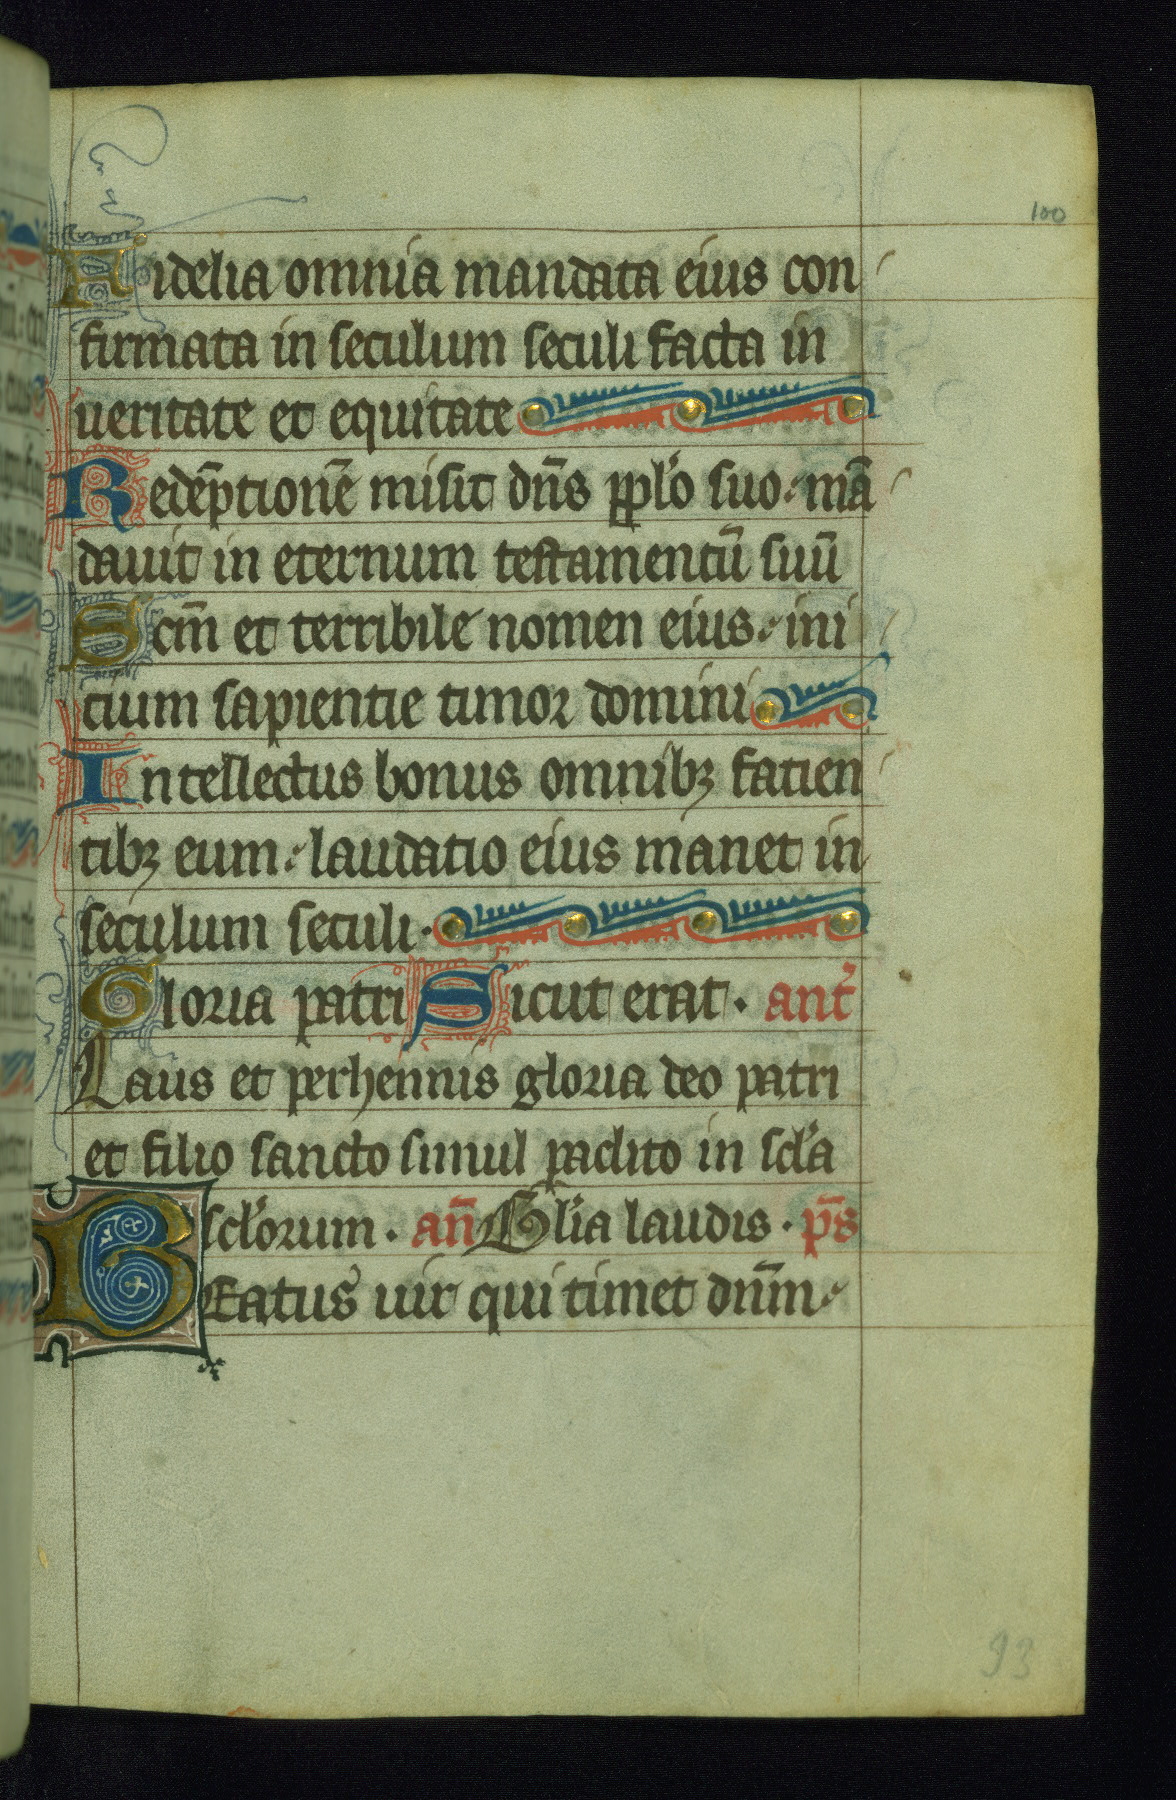 100
Fidelia omnia mandata eius con
firmata in seculum seculi facta in
ueritate et equitate
Redẽptionẽ misit dñs pplo suo mã
dauit in eternum testamentũ suũ
Scm̃ et terribile nomen eius ini
cium sapientie timor domini
Intellectus bonus omnibꝫ facien
tibꝫ eum laudatio eius manet in
seculum seculi.
Gloria patri Sicut erat. ant
Laus et perhennis gloria deo patri
et filio sancto simul paclito in scla
sclorum. añ Glia laudis. p̃s
Beatus uir qui timet dñm
93